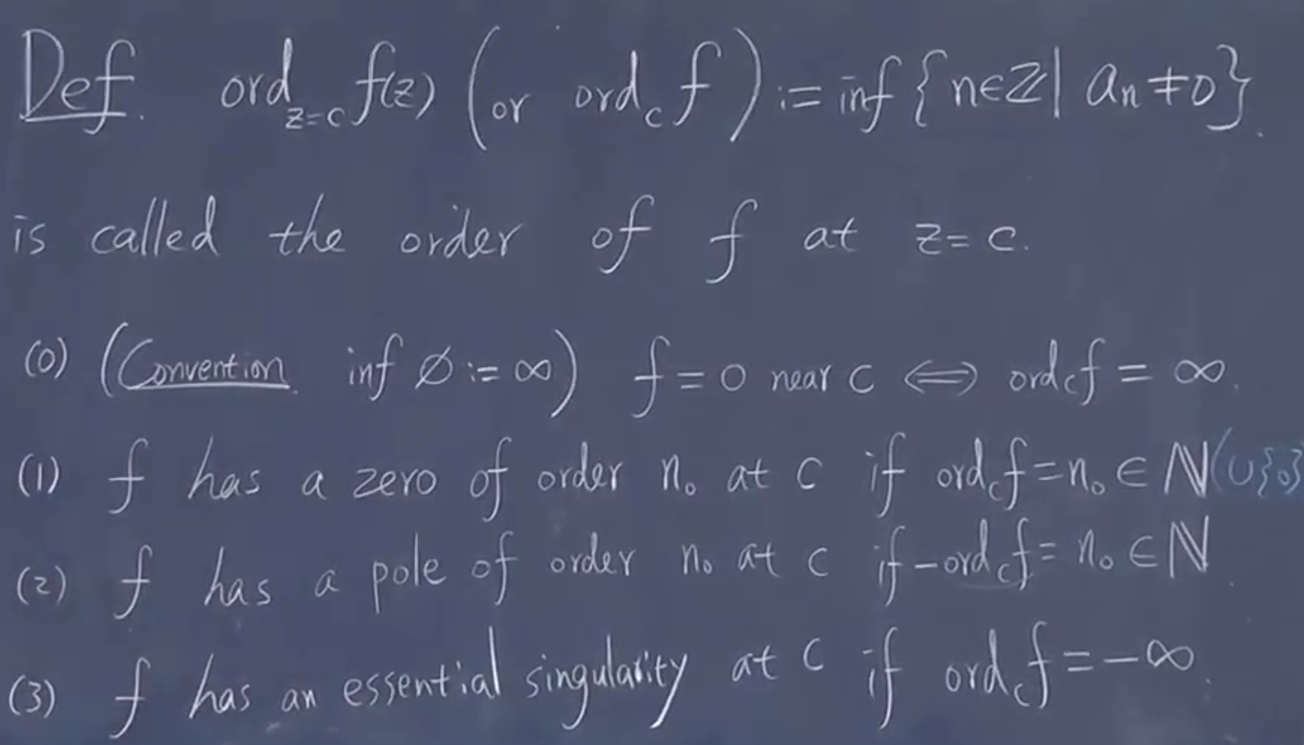 Def. ord_{z=c} f(z) (or ord_c f) := inf {n∈ℤ | a_n ≠ 0}.
is called the order of f at z = c.
(0) (Convention. inf ∅ := ∞) f = 0 near c ⟺ ord_c f = ∞.
(1) f has a zero of order n₀ at c if ord_c f = n₀ ∈ ℕ (∪{0}
(2) f has a pole of order n₀ at c if -ord_c f = n₀ ∈ ℕ.
(3) f has an essential singularity at c if ord_c f = -∞.